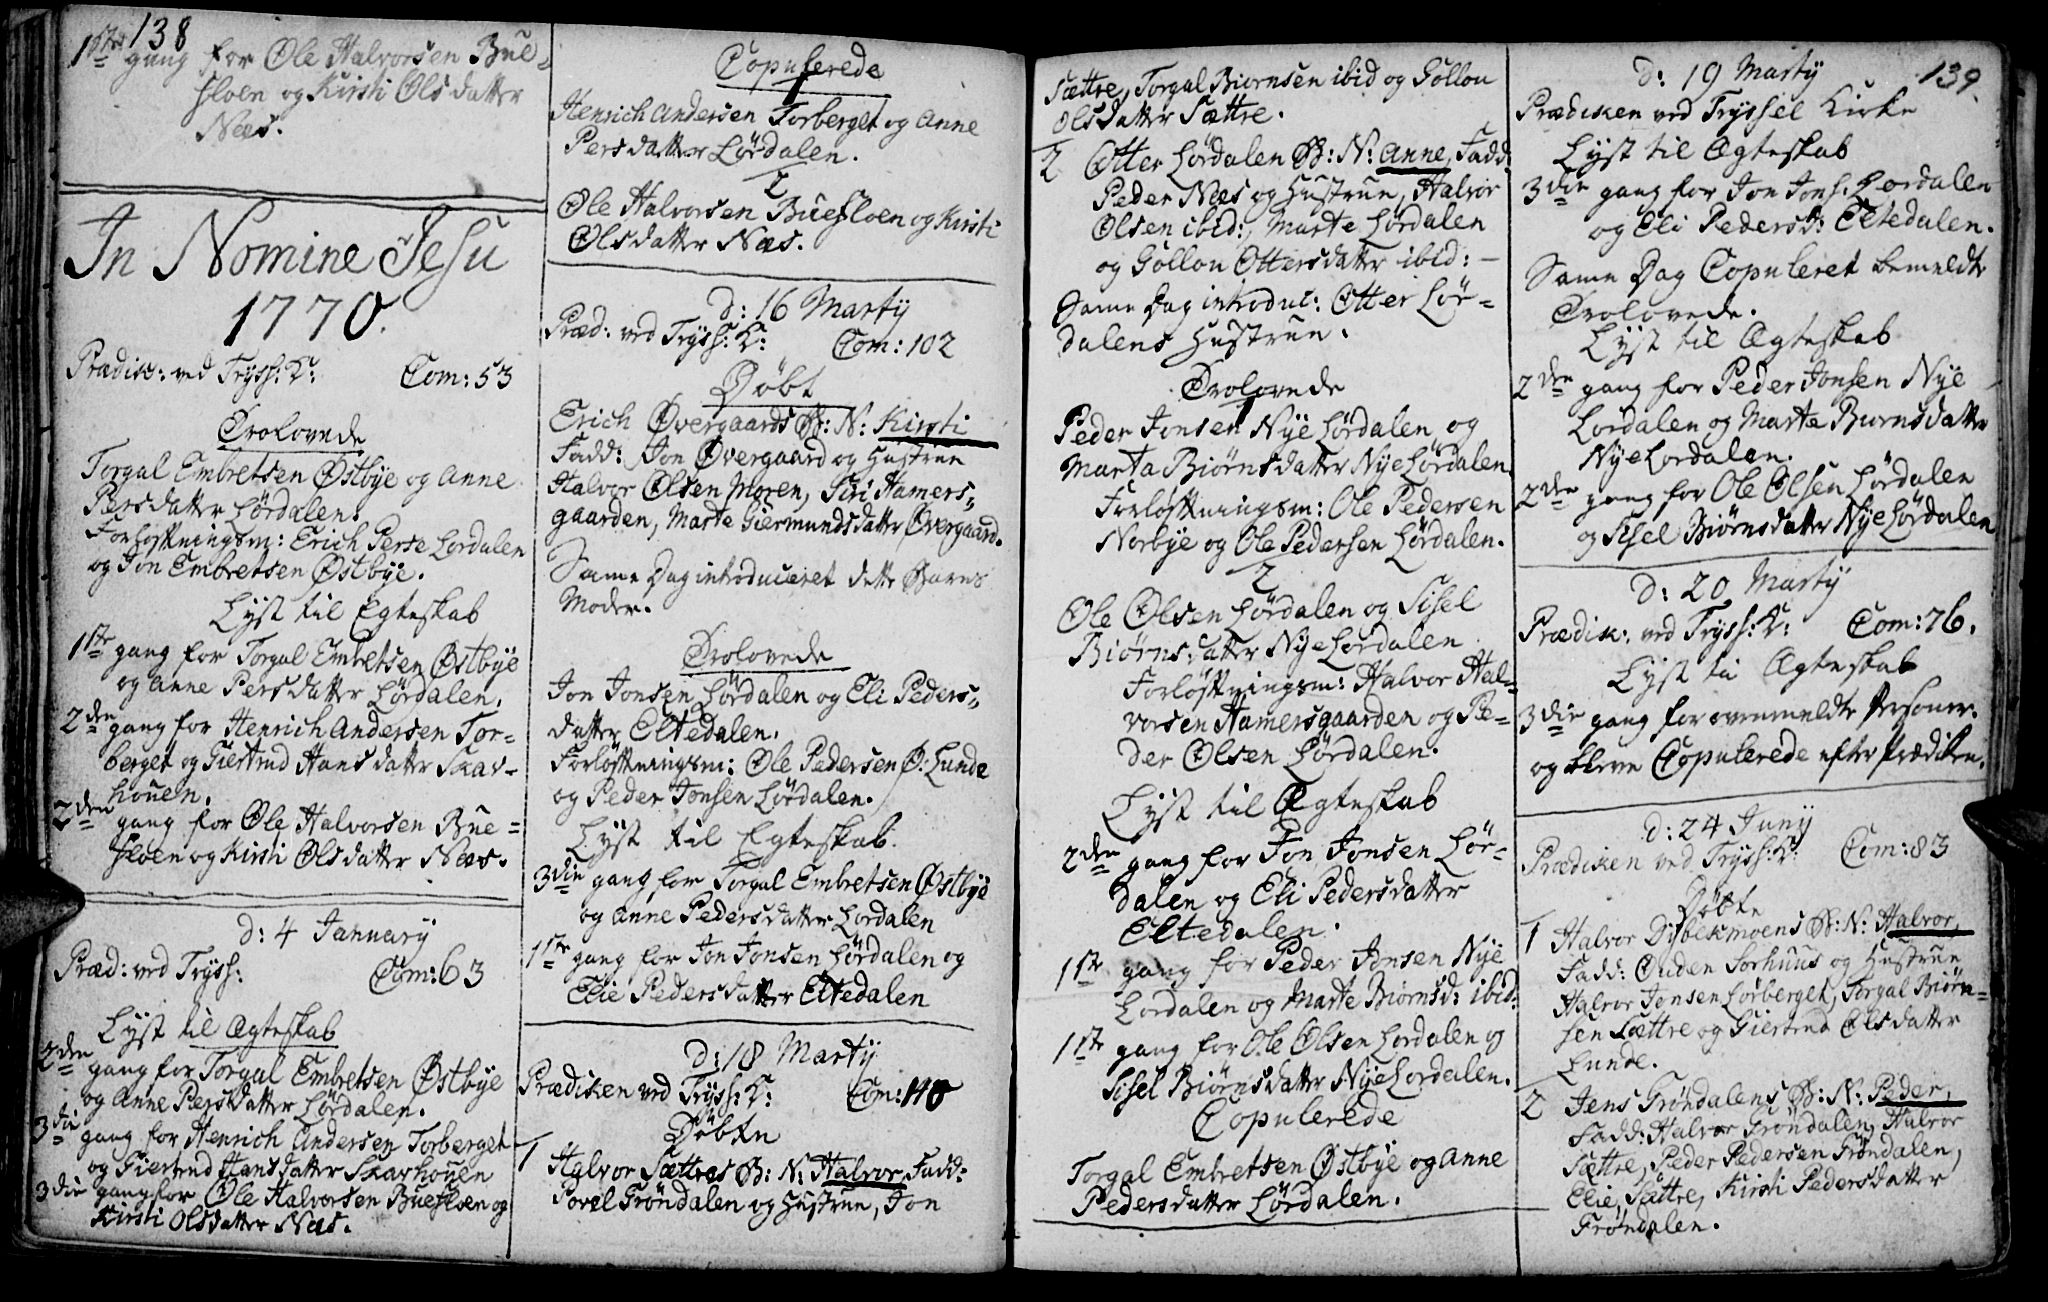 138
1ste gang for Ole Halvorsen Bue-
sloen og Kirsti Olsdatter
Næs.
In Nomine Jesu
1770.
Prædik: ved Tryss: K: Com: 53
Trolovede
Torgal Embretsen Østbye og Anne
Persdatter Lørdalen.
Forløftningsm: Erich Perse Lørdalen
og Jon Embretsen Østbye.
Lyst til Egteskab
1ste gang for Torgal Embretsen Østbye
og Anne Persdatter Lørdalen.
2den gang for Henrich Andersen Tor-
berget og Giertrud Hansdatter Skav-
houen.
2den gang for Ole Halvorsen Bue-
sloen og Kirsti Olsdatter Næs.
d: 4 January
Præd: ved Tryss: Com: 63
Lyst til Ægteskab
2den gang for Torgal Embretsen Østbye
og Anne Persdatter Lørdalen.
3die gang for Henrich Andersen Torberget
og Giertrud Hansdatter Skavhouen
3die gang for Ole Halvorsen Buesloen og
Kirsti Olsdatter Næs.
Copulerede
1
Henrich Andersen Torberget og Anne
Persdatter Lørdalen.
2
Ole Halvorsen Buesloen og Kirsti
Olsdatter Næs.
d: 16 Marty
Præd: ved Tryss: K: Com: 102
Døbt
Erich Øvergaards B: N: Kirsti
Fadd: Jon Øvergaard og Hustrue
Halvor Olsen Moren, Siri Hamers-
gaarden, Marte Giermundsdatter Øvergaard.
Same Dag introduceret dette Barns
Moder.
Trolovede
Jon Jonsen Lørdalen og Eli Peders-
datter Eltedalen.
Forløftningsm: Ole Pedersen Ø: Lunde
og Peder Jonsen Lørdalen.
Lyst til Egteskab
3die gang for Torgal Embretsen Østbye
og Anne Pedersdatter Lørdalen
1ste gang for Jon Jonsen Lørdalen og
Elie Pedersdatter Eltedalen
d: 18 Marty
Prædiken ved Tryss: K: Com: 110
Døbte
1 Halvor Sættres B: N: Halvor, Fadd:
Povel Grøndalen og Hustrue, Jon
Sættre, Torgal Biornsen ibid og Gollou
Olsdatter Sættre.
2 Otter Lørdalen B: N: Anne, Fadd:
Peder Næs og Hustrue, Halvor
Olsen ibid:, Marte Lørdalen
og Gollou Ottersdatter ibid: -
Same Dag introduc: Otter Lør-
dalens Hustrue.
Trolovede
1
Peder Jonsen Nye Lørdalen og
Marta Biørnsdatter Nye Lørdalen.
Forløftningsm: Ole Pedersen
Norbye og Ole Pedersen Lørdalen.
2
Ole Olsen Lørdalen og Sisel
Biørnsdatter Nye Lørdalen
Forløftningsm: Halvor Hal-
vorsen Hamersgaarden og Pe-
der Olsen Lørdalen.
Lyst til Ægteskab
2den gang for Jon Jonsen Lør-
dalen og Eli Pedersdatter
Eltedalen.
1ste gang for Peder Jonsen Nye
Lordalen og Marte Biørnsd: ibid:
1ste gang for Ole Olsen Lordalen og
Sisel Biørnsdatter Nye Lordalen.
Copulerede
Torgal Embretsen Østbye og Anne
Pedersdatter Lørdalen.
139.
d: 19 Marty
Prædiken ved Tryssel Kirke
Lyst til Ægteskab
3die gang for Jon Jons: Lordalen
og Eli Pedersd: Eltedalen.
Same Dag Copuleret bemeldte
Trolovede.
Lyst til Ægteskab
2den gang for Peder Jonsen Nye
Lordalen og Marte Biørnsdatter
Nye Lordalen.
2den gang for Ole Olsen Lørdalen
og Sisel Biørnsdatter Nye Lørdalen
d: 20 Marty
Prædik: ved Tryss: K: Com: 76.
Lyst til Ægteskab
3die gang for ovenmeldte Personer.
og bleve Copulerede efter Prædiken.
d: 24 Juny
Prædiken ved Tryss: K: Com: 83
Døbte
1 Halvor Dybekmoens B: N: Halvor,
Fadd: Ouden Sorhuus og Hustrue
Halvor Jonsen Lørberget, Torgal Biørn-
sen Sættre og Giertrud Olsdatter
Lunde.
2 Jens Grøndalens B: N: Peder,
Fadd: Halvor Grøndalen, Halvor
Sættre, Peder Pedersen Grøndalen,
Elie Sættre, Kirsti Pedersdatter
Grøndalen.